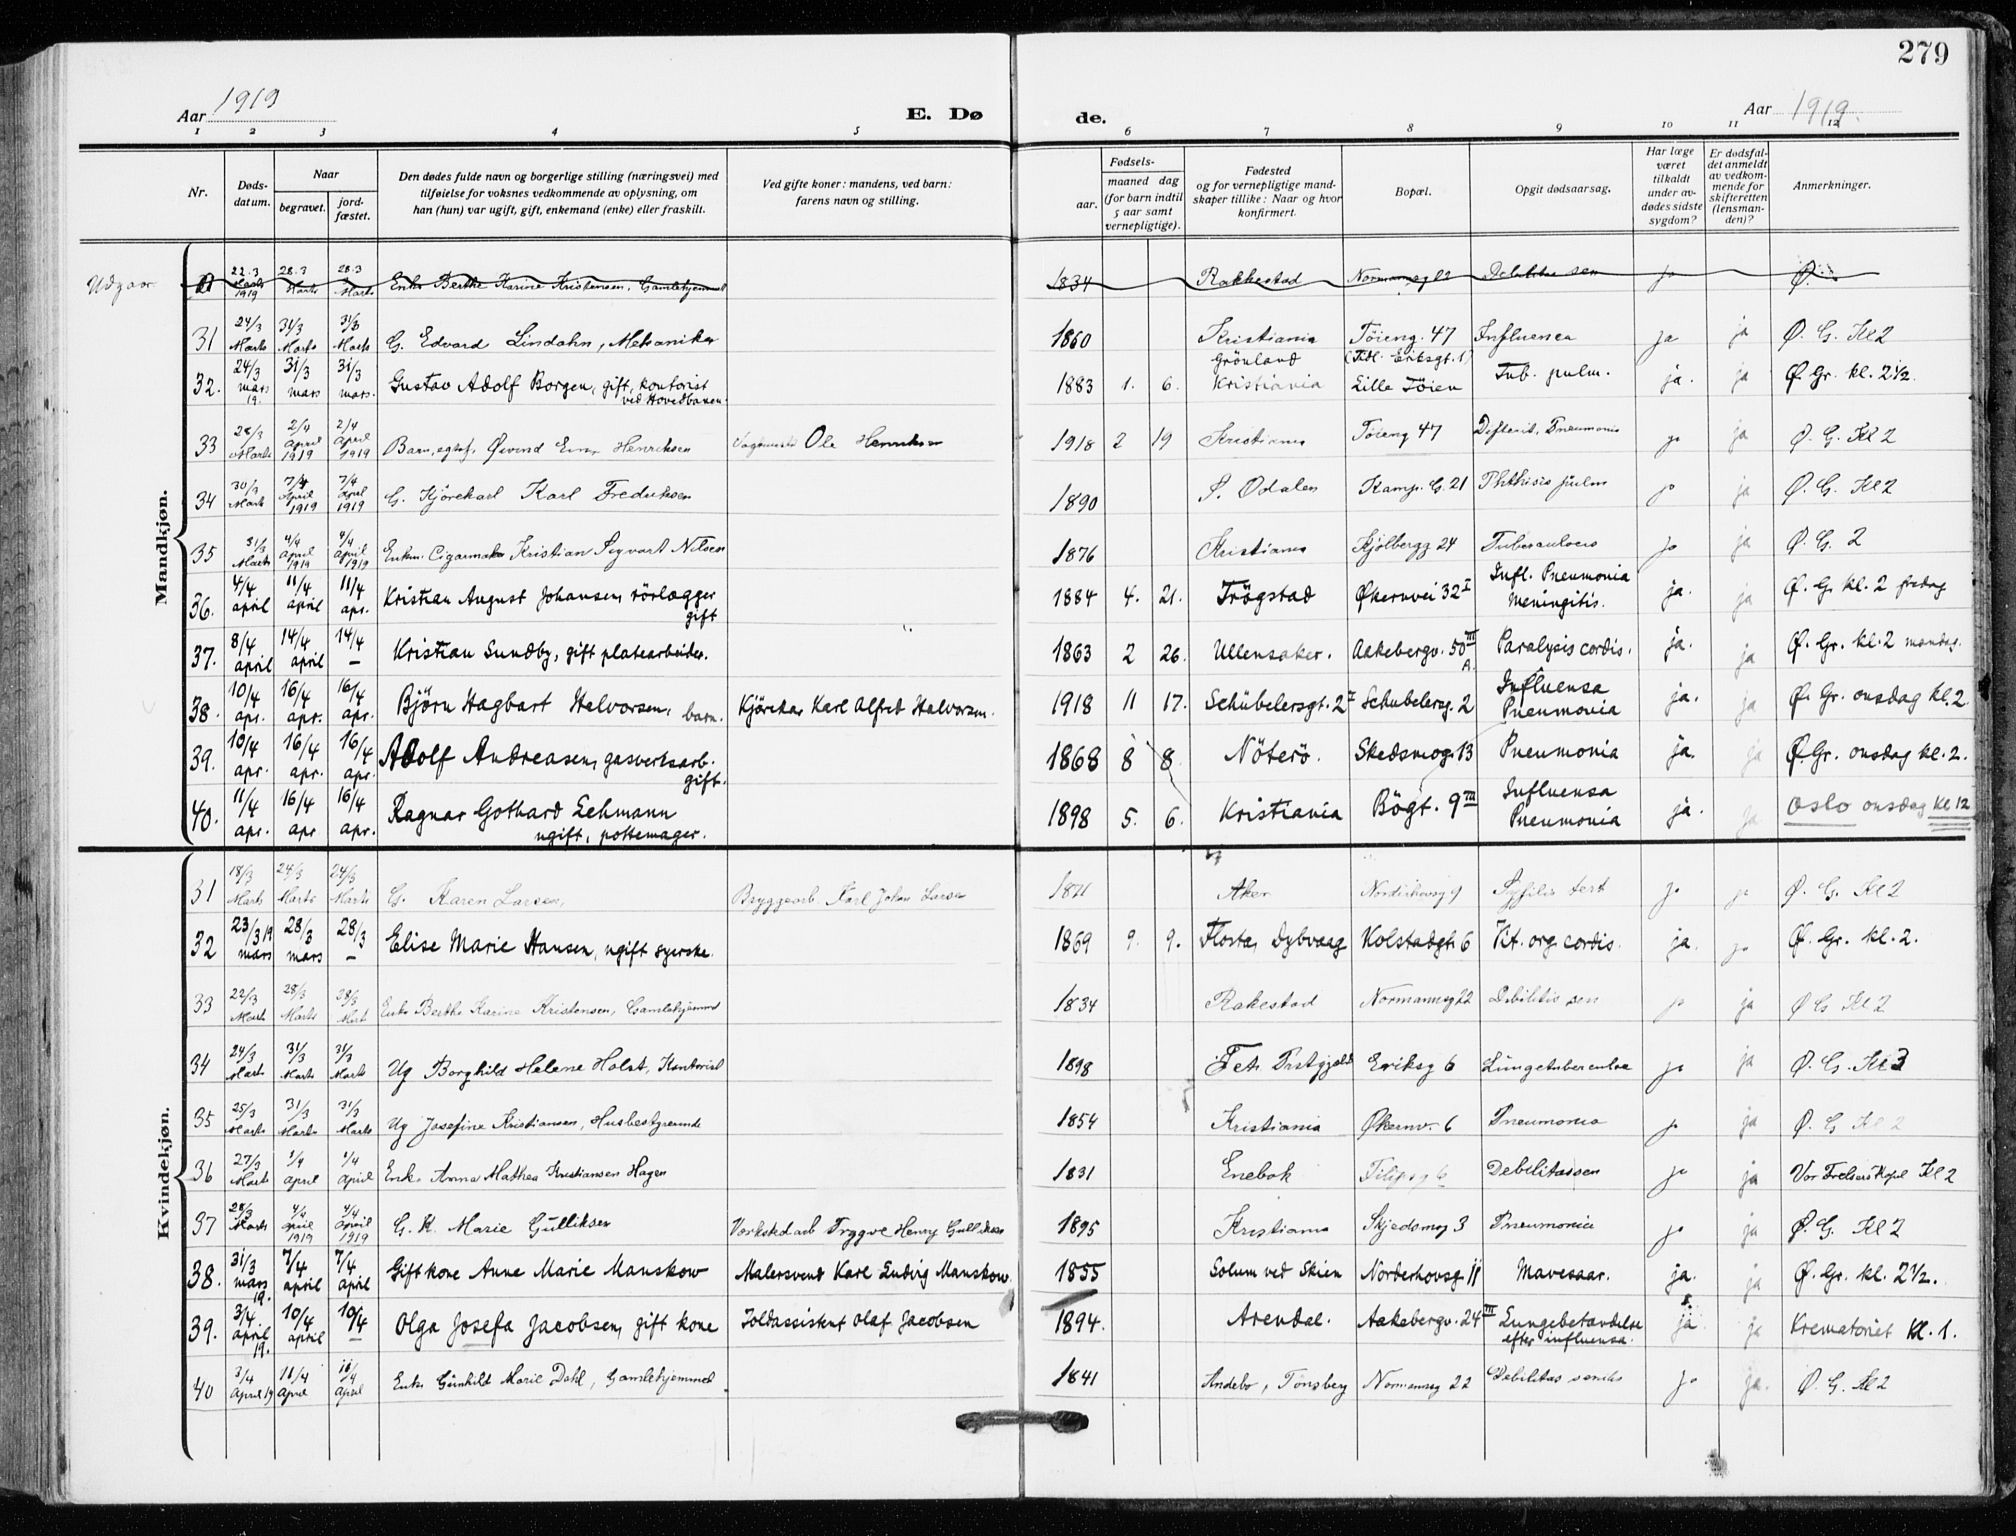 279
Aar 1919 E. Dø de. Aar 1919.
1 2 3 4 5 6 7 8 9 10 11 12
Nr. Døds-datum. Naar begravet. jord-fæstet. Den dødes fulde navn og borgerlige stilling (næringsvei) med tilføielse for voksnes vedkommende av oplysning, om han (hun) var ugift, gift, enkemand (enke) eller fraskilt. Ved gifte koner: mandens, ved barn: farens navn og stilling. Fødsels- aar. maaned dag (for barn indtil 5 aar samt vernepligtige). Fødested og for vernepligtige mandskaper tillike: Naar og hvor konfirmert. Bopæl. Opgit dødsaarsag. Har læge været tilkaldt under avdødes sidste sygdom? Er dødsfaldet anmeldt av vedkommende for skifteretten (lensmanden)? Anmerkninger.
Mandkjøn.
Udgaar 22.3 Marts 1919 28.3 Marts 28.3 Marts Enke Berthe Karine Kristensen, Gamlehjemmet 1834 Rakkestad Normannsg 22 Debilitas sen ja Ø.
31 24/3 Marts 31/3 Marts 31/3 Marts G. Edvard Lindahn, Mekaniker 1860 Kristiania Töieng. 47 Influenca ja ja Ø. G. Kl 2
32. 24/3 mars 19. 31/3 mars 31/3 mars. Gustav Adolf Borgen, gift, kontorist ved Hovedbanen. 1883 1. 6. Grönland Kristiania (Tidl. Eriksgt. 1) Lille Töien Tub. pulm. ja. ja Ø. Gr. kl. 2 1/2.
33 28/3 Marts 2/4 April 1919 2/4 April 1919 Barn, egtef, Øivind Einar Henriksen Vognmand Ole Henriksen 1918 2 19 Kristiania Töieng 47 Difterit, Pneumonia ja ja Ø. G. Kl 2
34 30/3 Marts 7/4 April 1919 7/4 April 1919 G. Kjörekarl Karl Fredriksen 1890 S. Odalen Kamp. G. 21 Phthisis pulm ja ja Ø. G. Kl 2
35 31/3 Marts 4/4 April 1919 4/4 April 1919 Enkm. Cigarmaker Kristian Sigvart Nilsen 1876 Kristiania Kjölbergg 24 Tuberculosis ja ja Ø. G. 2
36. 4/4 april 11/4 april 11/4 apr. Kristian August Johansen, rörlægger gift 1884 4. 21. Trögstad Økernvei 32 I Infl. Pneumonia Meningitis. ja. ja Ø. G. kl. 2 fredag
37. 8/4 april 14/4 april 14/4 — Kristian Sundby, gift platearbeider. 1863 2 26. Ullensaker. Aakebergv. 50 III A. Paralysis cordis. ja. ja Ø. Gr. kl. 2 mandag.
38. 10/4 apr. 16/4 apr. 16/4 apr. Björn Hagbart Halvorsen, barn. Kjörekar Karl Alfred Halvorsen. 1918 11 17. Schübelersgt. 2 I Schubelersg. 2 Influensa Pneumonia ja. ja Ø. Gr. onsdag kl. 2
39. 10/4 apr. 16/4 apr. 16/4 apr. Adolf Andreasen, gasverksarb. gift. 1868 8 8 Nöterö. Skedsmog. 13 Pneumonia ja. ja Ø. Gr. onsdag kl. 2.
40. 11/4 apr. 16/4 apr 16/4 apr. Ragnar Gothard Lehmann ugift, pottemager. 1898 5. 6. Kristiania Bögt. 9 III Influensa Pneumonia ja. ja Oslo onsdag kl 12
Kvindekjøn.
31 18/3 Marts 24/3 Marts 24/3 Marts G. Karen Larsen, Bryggearb. Karl Johan Larsen 1871 Aker Norderhovsg 9 Syfilis tert ja ja Ø. G. Kl 2
32 23/3 19 mars 28/3 mars 28/3 — Elise Marie Hansen, ugift syerske. 1869 9. 9. Flosta, Dybvaag Kolstadgt. 6 Vit. org cordis. ja. ja Ø. Gr. kl. 2.
33 22/3 Marts 28/3 Marts 28/3 Mart Enke Berthe Karine Kristensen, Gamlehjemmet 1834 Rakestad Normannsg 22 Debilitis sen ja ja Ø G Kl 2
34 24/3 Marts 31/3 Marts 31/3 Marts Ug Borghild Helene Holst, Kontorist 1898 Fet Prstgjeld Eriksg 6 Lungetuberculose ja ja Ø. G. Kl 3
35 25/3 Marts 31/3 Marts 31/3 Marts Ug Josefine Kristiansen, Husbestyrerinde 1854 Kristiania Økernv. 6 Pneumonia ja ja Ø. G Kl 2
36 27/3 Marts 1/4 April 1/4 April Enke Anna Mathea Kristiansen Hagen 1831 Enebak Filipsg 6 Debilitas sen ja ja Vor Frelsers Kapel Kl 2
37 28/3 Marts 4/4 April 1919 4/4 April 1919 G. K. Marie Gulliksen Verksted arb Tryggve Henry Gulliksen 1895 Kristiania Skjedsmog 3 Pneumonia ja ja Ø. G. Kl 2
38. 31/3 mars 19. 7/4 april 7/4 april Gift kone Anne Marie Manskow Malersvend Karl Ludvig Manskow. 1855 Solum ved Skien Norderhovsg. 11 Mavesaar. ja. ja Ø. Gr. kl. 2 1/2.
39. 3/4. april 19. 10/4 april 10/4 — Olga Josefa Jacobsen, gift kone Toldassistent Olaf Jacobsen 1894. Arendal. Aakebergv. 24 III Lungebetændelse efter influensa. ja. ja Krematoriet kl. 1.
40 3/4 April 19 11/4 April 11/4 April Enke Gunhild Marie Dahl, Gamlehjemmet 1841 Andebo, Tönsberg Normannsg 22 Debilitas senilis ja ja. Ø. G. Kl 2